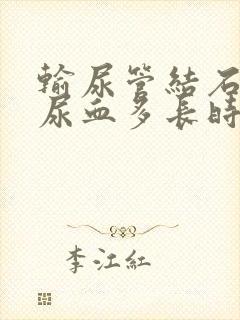 輸尿管結石
尿血多長時
李江紅